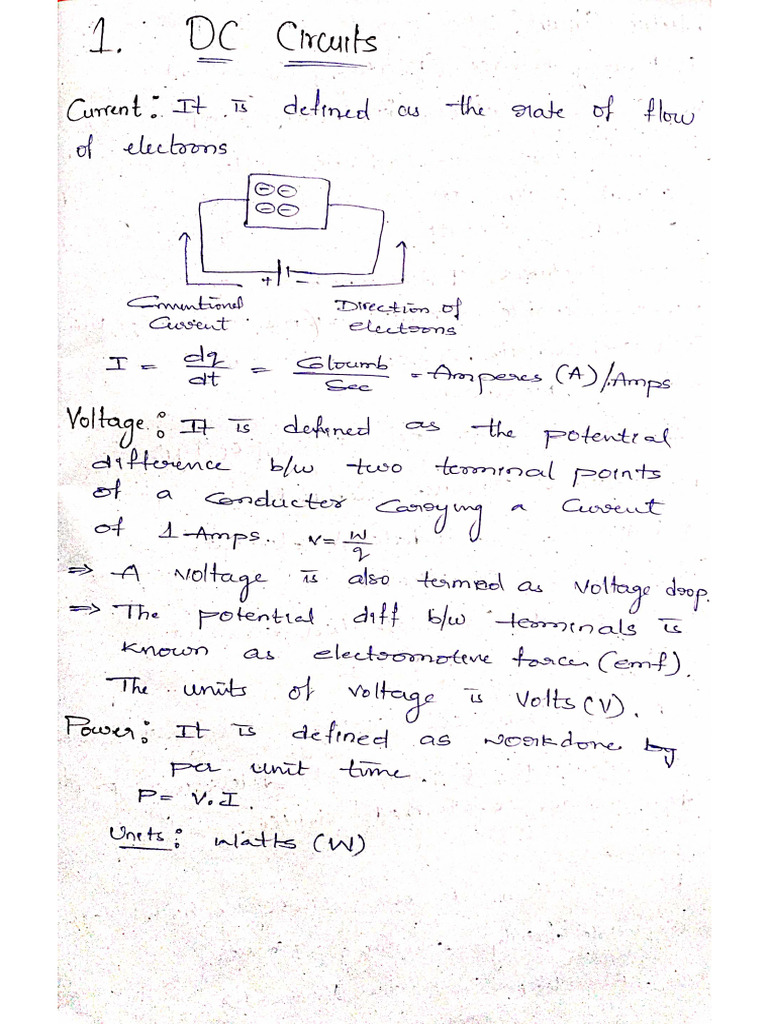 1. DC Circuits
Current: It is defined as the rate of flow
of electrons
+ -
Conventional Direction of
Current electrons
I = dq/dt = Coloumb/Sec = Amperes (A)/Amps
Voltage: It is defined as the potential
difference b/w two terminal points
of a conductor carrying a current
of 1 Amps. v = w/q
⇒ A voltage is also termed as voltage drop.
⇒ The potential diff b/w terminals is
known as electromotive force (emf).
The units of voltage is Volts (V).
Power: It is defined as workdone by
per unit time.
P = V.I.
Units: Watts (W)